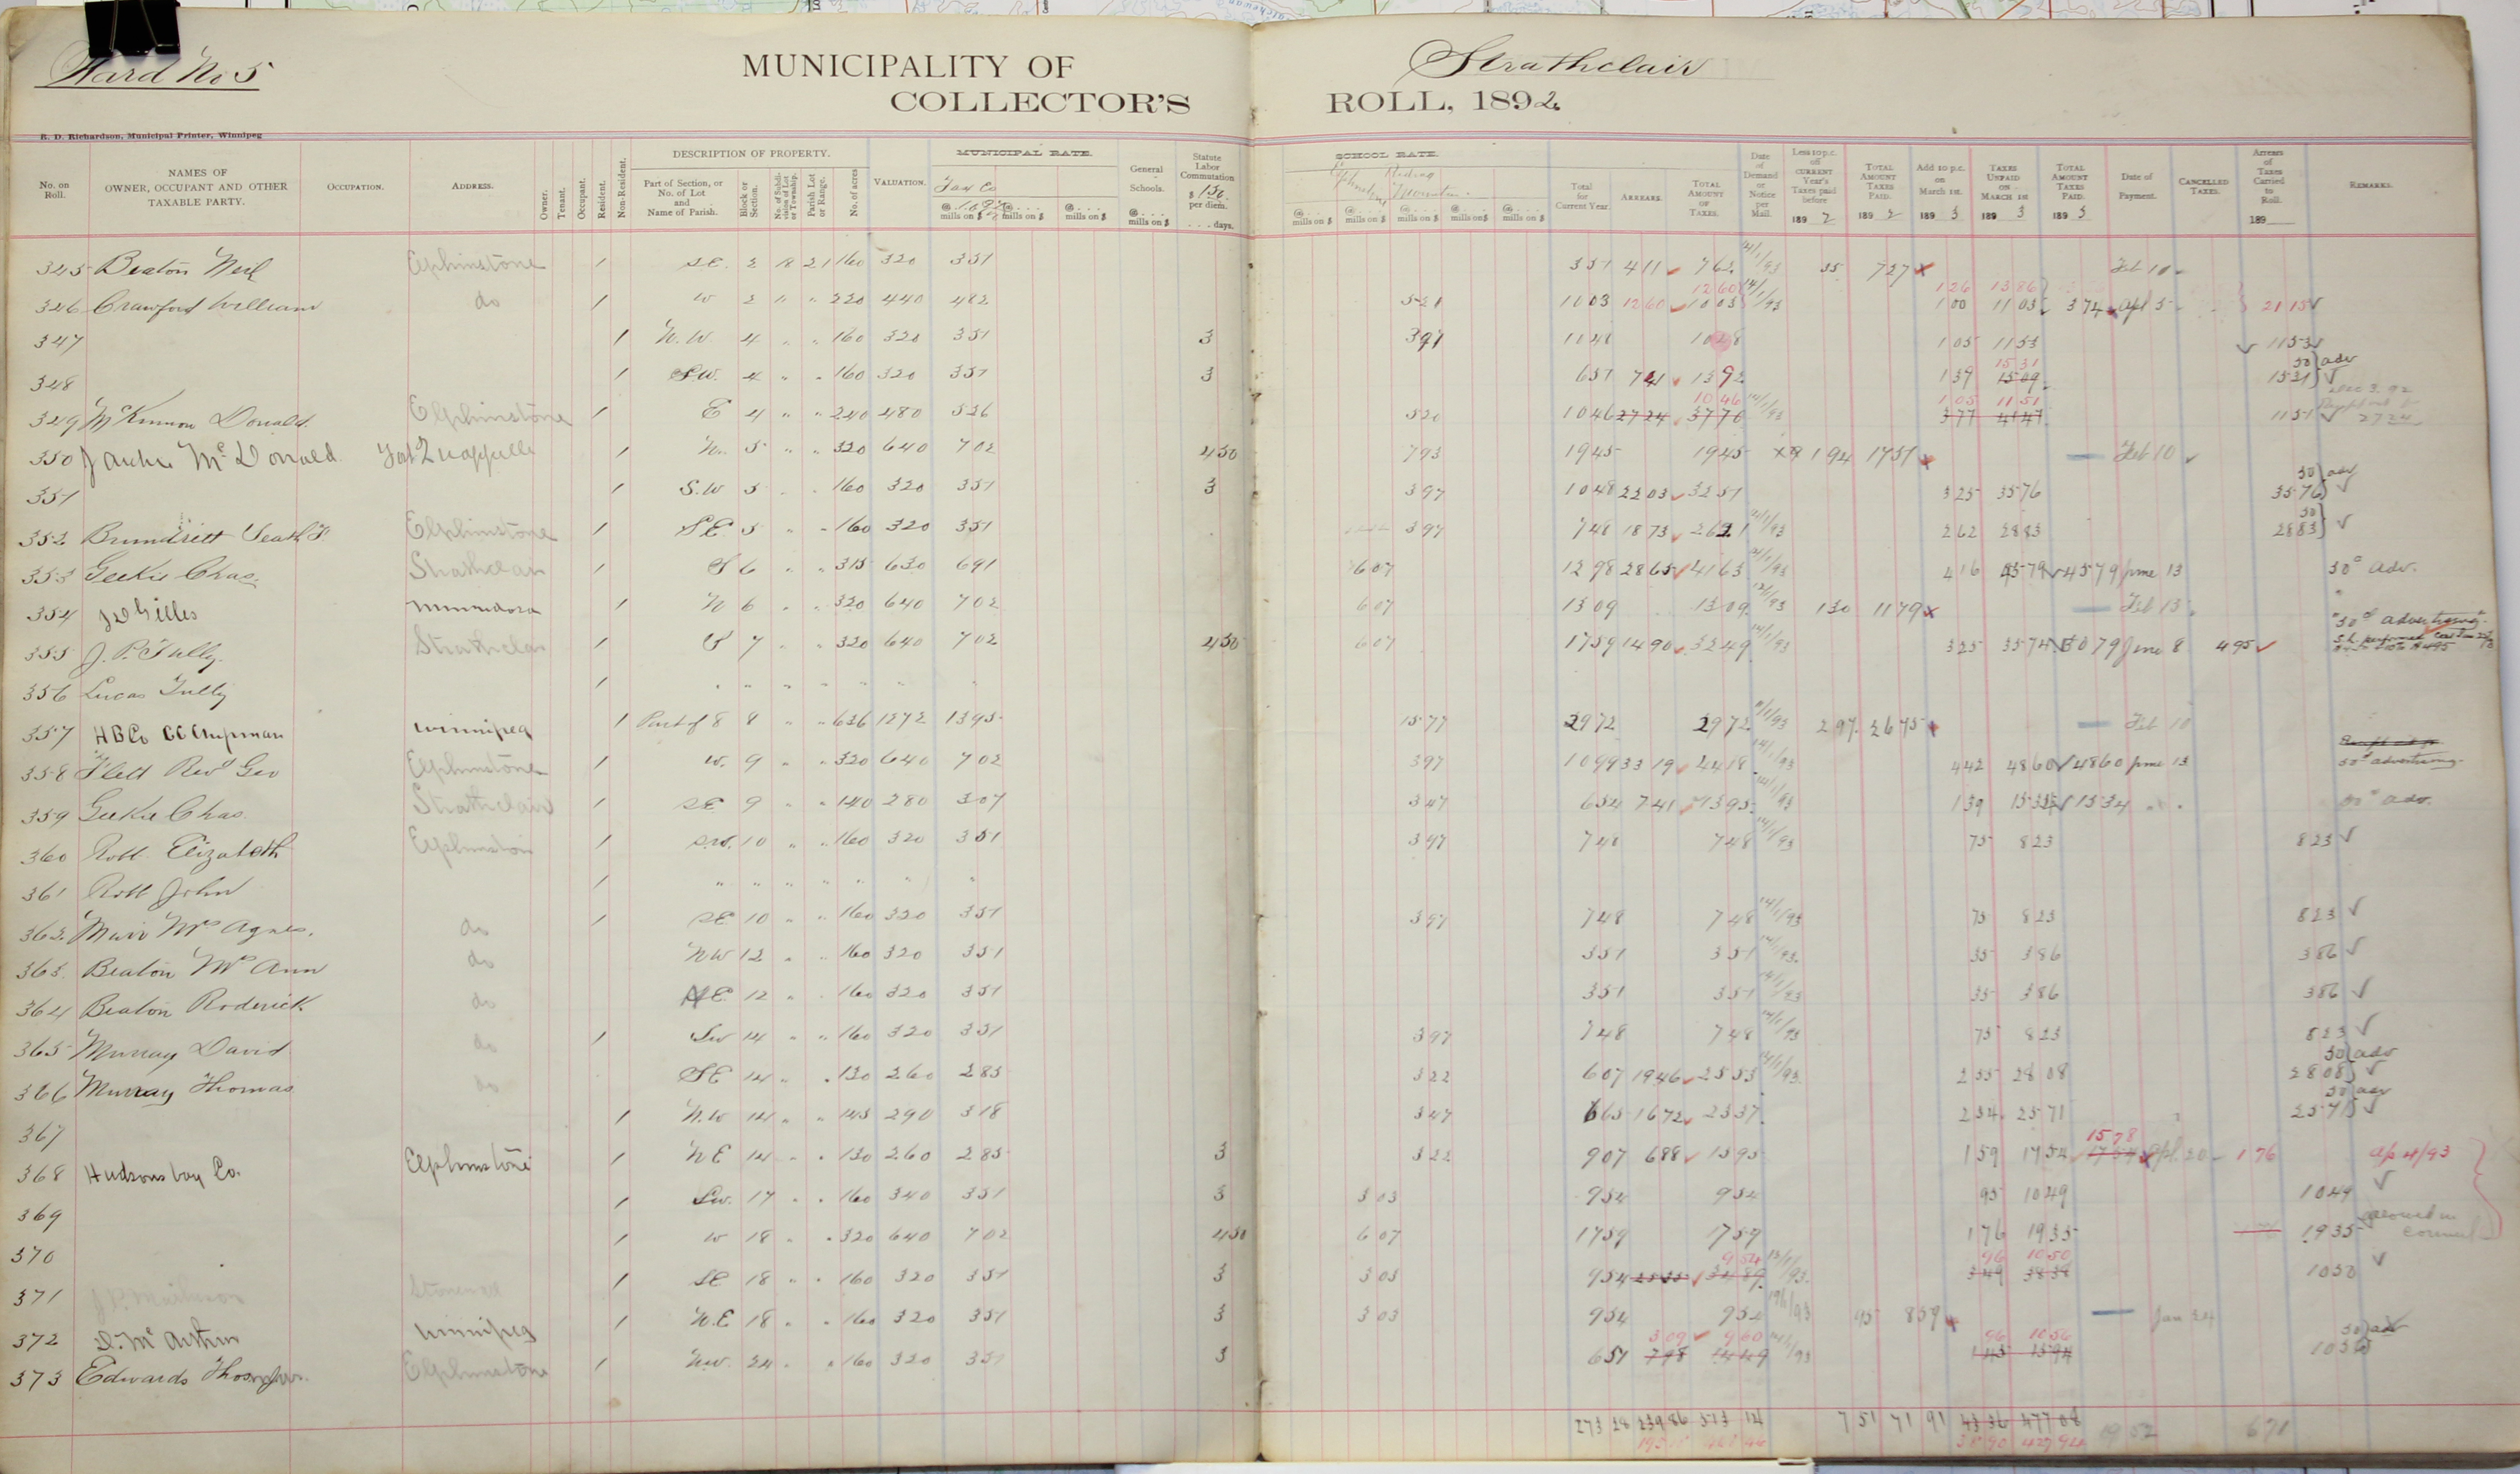 Ward No 5
MUNICIPALITY OF Strathclair
COLLECTOR'S ROLL, 1892
R. D. Richardson, Municipal Printer, Winnipeg
No. on Roll. NAMES OF OWNER, OCCUPANT AND OTHER TAXABLE PARTY. OCCUPATION. ADDRESS. Owner. Tenant. Occupant. Resident. Non-Resident. DESCRIPTION OF PROPERTY. Part of Section, or No. of Lot and Name of Parish. Block or Section. No. of Subdivision of Lot or Township. Parish Lot or Range. No. of acres VALUATION. MUNICIPAL RATE. @ mills on $ @ mills on $ @ mills on $ General Schools. @ mills on $ Statute Labor Commutation $ 1.50 per diem. days. SCHOOL RATE. Riding Mountain @ mills on $ @ mills on $ @ mills on $ @ mills on $ @ mills on $ Total for Current Year. ARREARS. TOTAL AMOUNT OF TAXES. Date of Demand or Notice per Mail. Less 10 p.c. off CURRENT Year's Taxes paid before 1892 TOTAL AMOUNT TAXES PAID. 1892 Add 10 p.c. on March 1st. 1893 TAXES UNPAID ON MARCH 1st 1893 TOTAL AMOUNT TAXES PAID. 1893 Date of Payment. CANCELLED TAXES. Arrears of Taxes Carried to Roll. 189 REMARKS.
345 Beaton Neil Elphinstone 1 S.E. 2 18 21 160 320 351 351 411 762 14/1/93 35 727 Feb 10
346 Crawford William do 1 W 2 " " 220 440 482 521 1003 1260 1003 1260 14/1/93 100 1103 126 1386 374 apl 5 2115
347 1 N.W. 4 " " 160 320 351 3 397 1048 1048 105 1153 1153
348 1 S.W. 4 " " 160 320 351 3 651 741 1392 139 1509 1531 1531 30 adv
349 McKinnon Donald Elphinstone 1 E 4 " " 240 480 526 520 1046 2724 3770 1046 14/1/93 377 4147 105 1151 1151 Dec 3 92 2724
350 J Archie McDonald Fort Quappelle 1 N. 5 " " 320 640 702 450 793 1945 1945 194 1751 Feb 10
351 1 S.W 5 " " 160 320 351 3 397 1048 2203 3251 325 3576 3576 30 adv
352 Brundritt Elphinstone 1 S.E. 5 " " 160 320 351 397 748 1873 2621 14/1/93 262 2883 2883 30
353 Geekie Chas. Strathclair 1 S 6 " " 315 630 691 607 1298 2865 4163 416 4579 4579 June 13 30c adv.
354 J D Gilles Minnedosa 1 N 6 " " 320 640 702 607 1309 1309 12/1/93 130 1179 Feb 13
355 J. P. Tully Strathclair 1 S 7 " " 320 640 702 450 607 1759 1490 3249 14/1/93 325 3574 3079 June 8 495 "30c advertising"
356 Lucas Tully 1 " " " " " " "
357 HB Co CC Chipman Winnipeg 1 Part of 8 8 " " 636 1272 1395 1577 2972 2972 297 2675 Feb 10
358 Flett Revd Geo Elphinstone 1 W. 9 " " 320 640 702 397 1099 3319 4418 14/1/93 442 4860 4860 June 13 30c advertising
359 Geekie Chas. Strathclair 1 S.E 9 " " 140 280 307 347 654 741 1395 139 1534 1534 " " 30c adv.
360 Robb Elizabeth Elphinston 1 S.W. 10 " " 160 320 351 397 748 748 14/1/93 75 823 823
361 Robb John 1 " " " " " " "
362 Muir Mrs Agnes. do 1 S.E 10 " " 160 320 351 397 748 748 14/1/93 75 823 823
363 Beaton Mrs Ann do NW 12 " " 160 320 351 351 351 14/1/93 35 386 386
364 Beaton Roderick do N.E. 12 " " 160 320 351 351 351 14/1/93 35 386 386
365 Murray David do 1 SW 14 " " 160 320 351 397 748 748 14/1/93 75 823 823
366 Murray Thomas do S.E 14 " " 130 260 285 322 607 1946 2553 14/1/93 255 2808 2808 30 adv
367 1 N.W 14 " " 145 290 318 347 665 1672 2337 234 2571 2571 30 adv
368 Hudsons bay Co. Elphinstone 1 N E 14 " " 130 260 285 3 322 907 688 1595 159 1754 1754 1578 Apl. 20 176 ap 4/93
369 1 S.W. 17 " " 160 340 351 3 303 954 954 95 1049 1049
370 1 W 18 " " 320 640 702 450 607 1759 1759 176 1935 1935 allowed in council
371 J. P. Matheson Stonewall 1 S.E 18 " " 160 320 351 3 303 954 2535 3489 954 349 3838 96 1050 1050
372 D. McArthur Winnipeg 1 N.E 18 " " 160 320 351 3 303 954 954 95 859 Jan 24
373 Edwards Thos. Elphinstone 1 N.W. 24 " " 160 320 351 3 651 798 1449 309 960 14/1/93 145 1594 96 1056 1056 30 adv
273 28 239 86 513 14 7 51 71 91 43 36 477 08
38 90 429 94 671